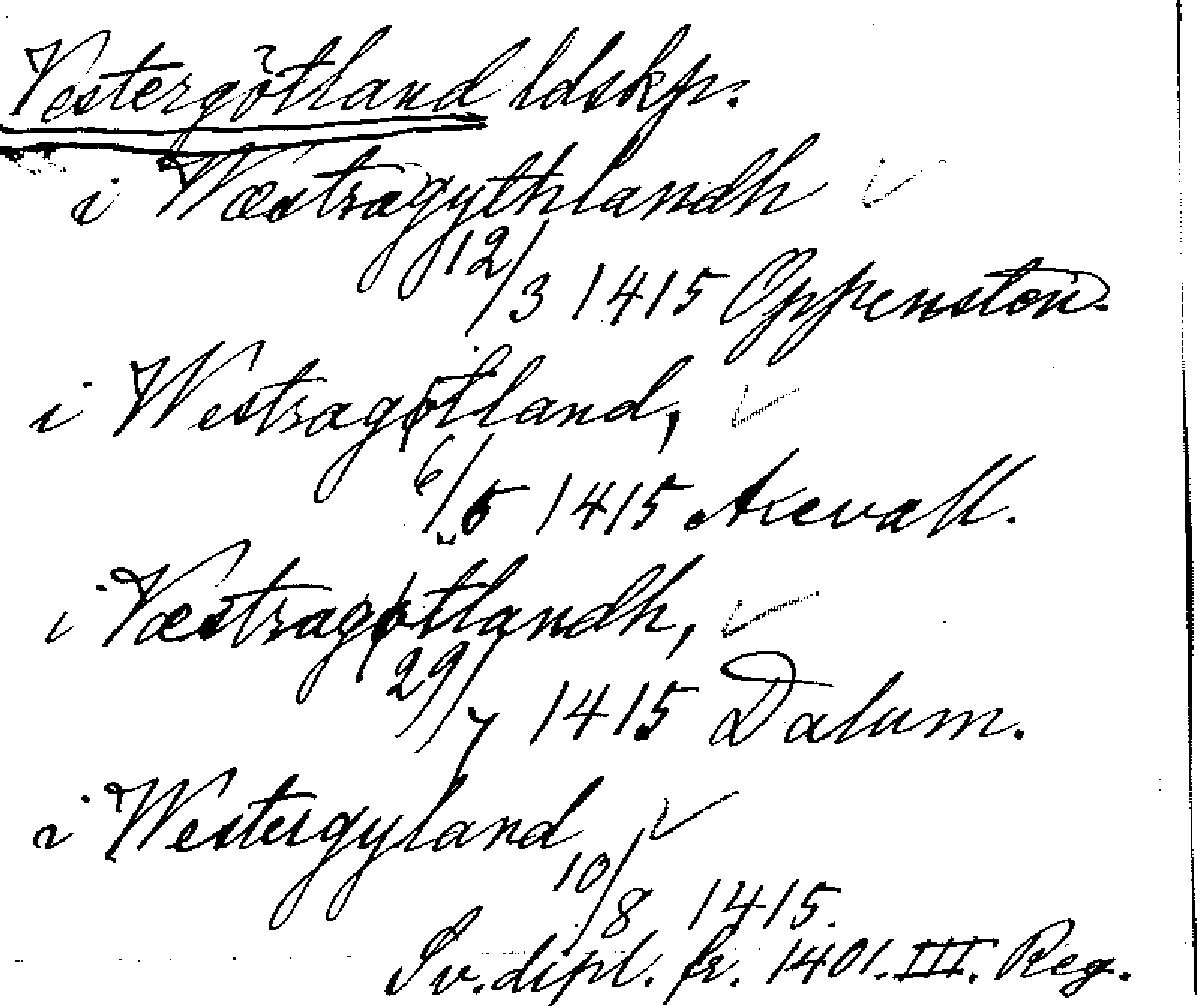 Vestergötland ldskp.
i Væstragythlandh
12/3 1415 Oppensten.
i Westragøtland,
6/5 1415 Axevall.
i Væstragøtlandh,
29/7 1415 Dalum.
i Westergyland
10/8 1415.
Sv. dipl. fr. 1401. III. Reg.